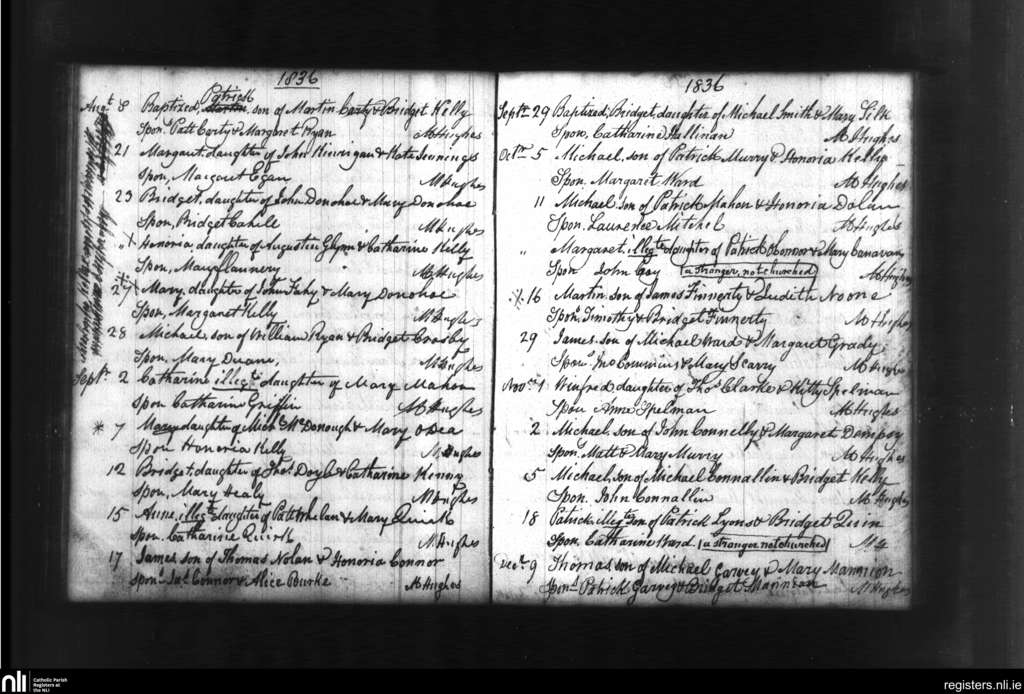 1836
Augt 8 Baptized, Patrick Martin, son of Martin Carty & Bridget Kelly
Spon, Patt Carty & Margaret Ryan M Hughes
21 Margaret, daughter of John Kinrigan & Kate Jennings
Spon, Margaret Egan M Hughes
23 Bridget, daughter of John Donohoe & Mary Donohoe
Spon, Bridget Cahill M Hughes
" X Honoria, daughter of Augustin Glynn & Catharine Kelly
Spon, Mary Flannery M Hughes
27 X Mary, daughter of John Fahy & Mary Donohoe
Spon, Margaret Kelly M Hughes
28 Michael, son of William Ryan & Bridget Crosby
Spon, Mary Duane, M Hughes
Septr 2 Catharine illegte daughter of Mary Mahon
Spon Catharine Griffin M Hughes
* 7 Mary daughter of Michl McDonough & Mary ODea
Spon Honoria Kelly M Hughes
12 Bridget, daughter of Thos Doyle & Catharine Kenny
Spon, Mary Healy M Hughes
15 Anne, illegte daughter of Patt Whelan & Mary Quirk
Spon. Catharine Quirk M. Hughes
17 James son of Thomas Nolan & Honoria Connor
Spons Jas Connor & Alice Burke M Hughes
1836
Septr 29 Baptized, Bridget, daughter of Michael Smith & Mary Silk
Spon, Catharine Hallinan M Hughes
Octr 5 Michael, son of Patrick Murry & Honoria Kelly
Spon. Margaret Ward M Hughes
11 Michael son of Patrick Mahon & Honoria Dolan
Spon. Laurence Mitchel M Hughes
" Margaret, illegte daughter of Patrick OConnor & Mary Canavan
Spon John Coy (a stranger, not churched) M Hughes
16 Martin son of James Finnerty & Judith Noone
Spon, Timothy & Bridget Finnerty M Hughes
29 James son of Michael Ward & Margaret Grady
Spon Jno & Mary Scarry M Hughes
Novr 1 Winfred daughter of Thos Clarke & Kitty Spelman
Spon Anne Spelman M Hughes
2 Michael son of John Connelly & Margaret Dempsy
Spon, Matt & Mary Murry M Hughes
5 Michael, son of Michael Connallin & Bridget Kelly
Spon. John Connallin M Hughes
18 Patrick illegte son of Patrick Lyons & Bridget Quin
Spon, Catharine Ward (a stranger not churched) M H
Decr 9 Thomas son of Michael Garvey & Mary Mannion
Spons Patrick Garvey & Bridget Mannion M Hughes
nli Catholic Parish
Registers at
the NLI
registers.nli.ie